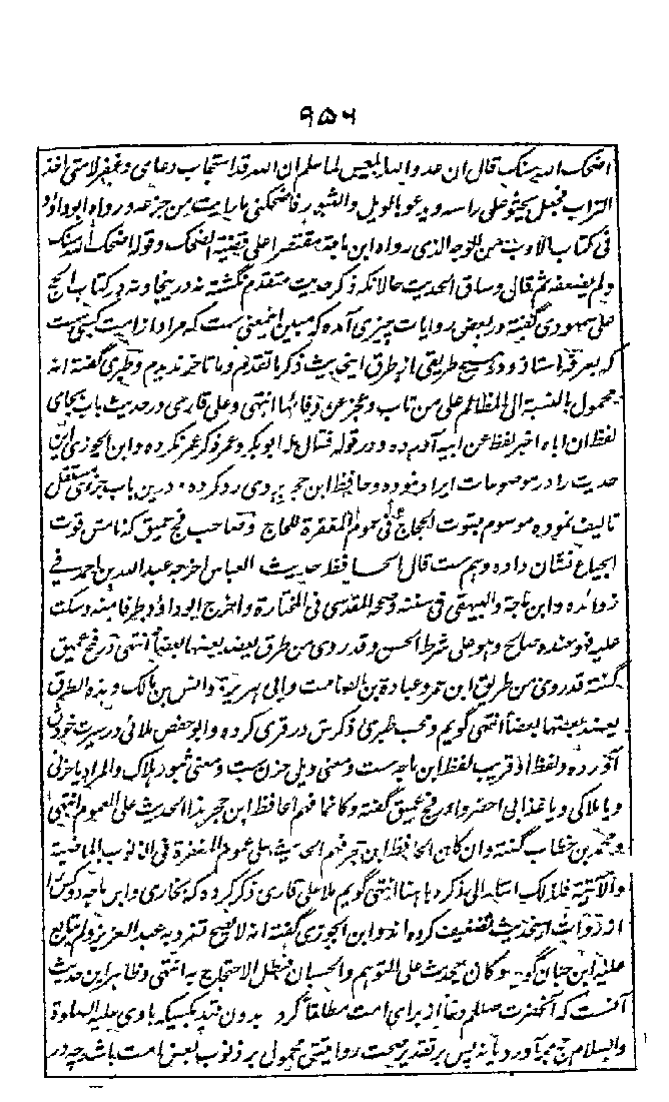 ۹۵۶
اضحک الله سنک قال ان عدو الله ابلیس لما علم ان الله قد استجاب دعای و غفر لامتی اخذ
التراب فجعل یحثو علی راسه و یدعو بالویل والثبور فاضحکنی ما رایت من جزعه و رواه ابوداؤد
فی کتاب الادب من الوجه الذی رواه ابن ماجة مقتصرا علی قضیة الضحک و قوله اضحک الله سنک
ولم یضعفه ثم قال و ساق الحدیث حالانکه ذکر حدیث متقدم نگشته نه درینجا و نه در کتاب الحج
علی سمهودی گفته در بعض روایات چیزی آمده که مبین اینمعنی ست که مراد از امت کسی ست
که بعرفه استاذه و در هیچ طریقی از طرق اینحدیث ذکر ما تقدم و ما تاخر ندیدم و طبری گفته انه
محمول بالنسبة الی المظالم علی من تاب و عجز عن وفائها انتهی و علی قاری در حدیث باب بجای
لفظ ان اباه اخبر لفظ عن ابیه آورده و در قوله فقال له ابوبکر و عمر ذکر عمر نکرده و ابن الجوزی این
حدیث را در موضوعات ایراد نموده و حافظ ابن حجر بر وی رد کرده و درین باب جزئی مستقل
تالیف نموده موسوم بقوت الحجاج فی عموم المغفرة للحاج و صاحب فج عمیق کذا من قوت
الحجاج نشان داده و هم ست قال الحافظ حدیث العباس اخرجه عبد الله بن احمد فی
زوائده و ابن ماجة والبیهقی فی سننه و صححه المقدسی فی المختارة و اخرج ابوداؤد طرفا منه و سکت
علیه فهو عنده صالح و هو علی شرط الحسن و قد روی من طرق یعضد بعضها بعضا انتهی در فج عمیق
گفته قد روی من طریق ابن عمر و عبادة بن الصامت و ابی هریرة و انس بن مالک و هذه الطرق
یعضد بعضها بعضا انتهی گویم و محب طبری ذکرش در قری کرده و ابو حفص ملائی در سیرت خود
آورده و لفظ او قریب لفظ ابن ماجه ست و معنی ویل حزن ست و معنی ثبور هلاک والمراد یا حزنی
و یا هلاکی و یا عذابی احضر و در فج عمیق گفته و کانما فهم الحافظ ابن حجر هذا الحدیث علی العموم انتهی
و محمد بن خطاب گفته و ان کان الحافظ ابن حجر فهم الحدیث علی عموم المغفرة فی الذنوب الماضیة
والآتیة فلذلک استدل بذکره هاهنا انتهی گویم ملا علی قاری ذکر کرده که بخاری و ابن ماجه دو کس را
از روات اینحدیث تضعیف کرده اند و ابن الجوزی گفته انه لا یصح تفرد به عبد العزیز ولم یتابع
علیه ابن حبان گوید و کان یحدث علی التوهم والحسبان فبطل الاحتجاج به انتهی و ظاهر این حدیث
آنست که آنحضرت صلعم دعا از برای امت مطلقا کرد بدون تقیید بکسیکه با وی علیه الصلوة
والسلام حج بجا آورد یا نه پس بر تقدیر صحت روایتی محمول بر ذنوب بعض امت باشد چه در